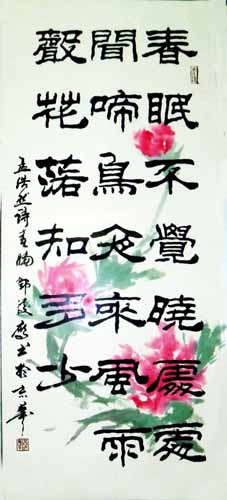 春眠不覺曉處處
聞啼鳥夜來風雨
聲花落知多少
孟浩然詩春曉 書於京華